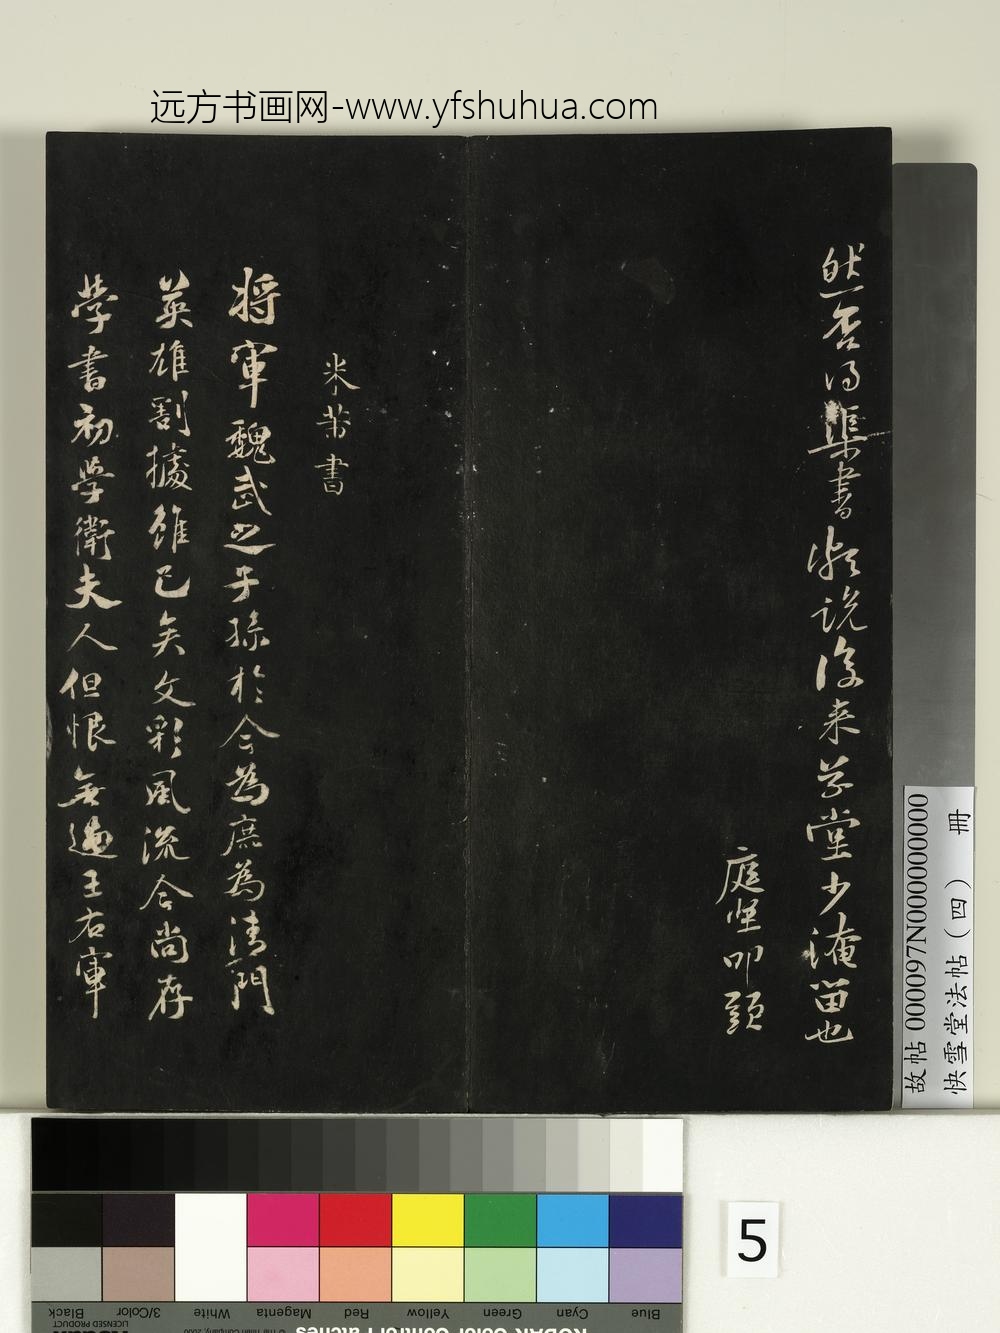 远方书画网-www.yfshuhua.com
然否得渠书频说后来草堂少淹留也
庭坚叩頭
米芾書
将軍魏武之子孫於今為庶為清門
英雄割據雖已矣文彩風流今尚存
學書初學衛夫人但恨無過王右軍
故帖 000097N000000000
快雪堂法帖（四） 冊
5
Black
3/Color
White
Magenta
Red
Yellow
Green
Cyan
Blue
LICENSED PRODUCT